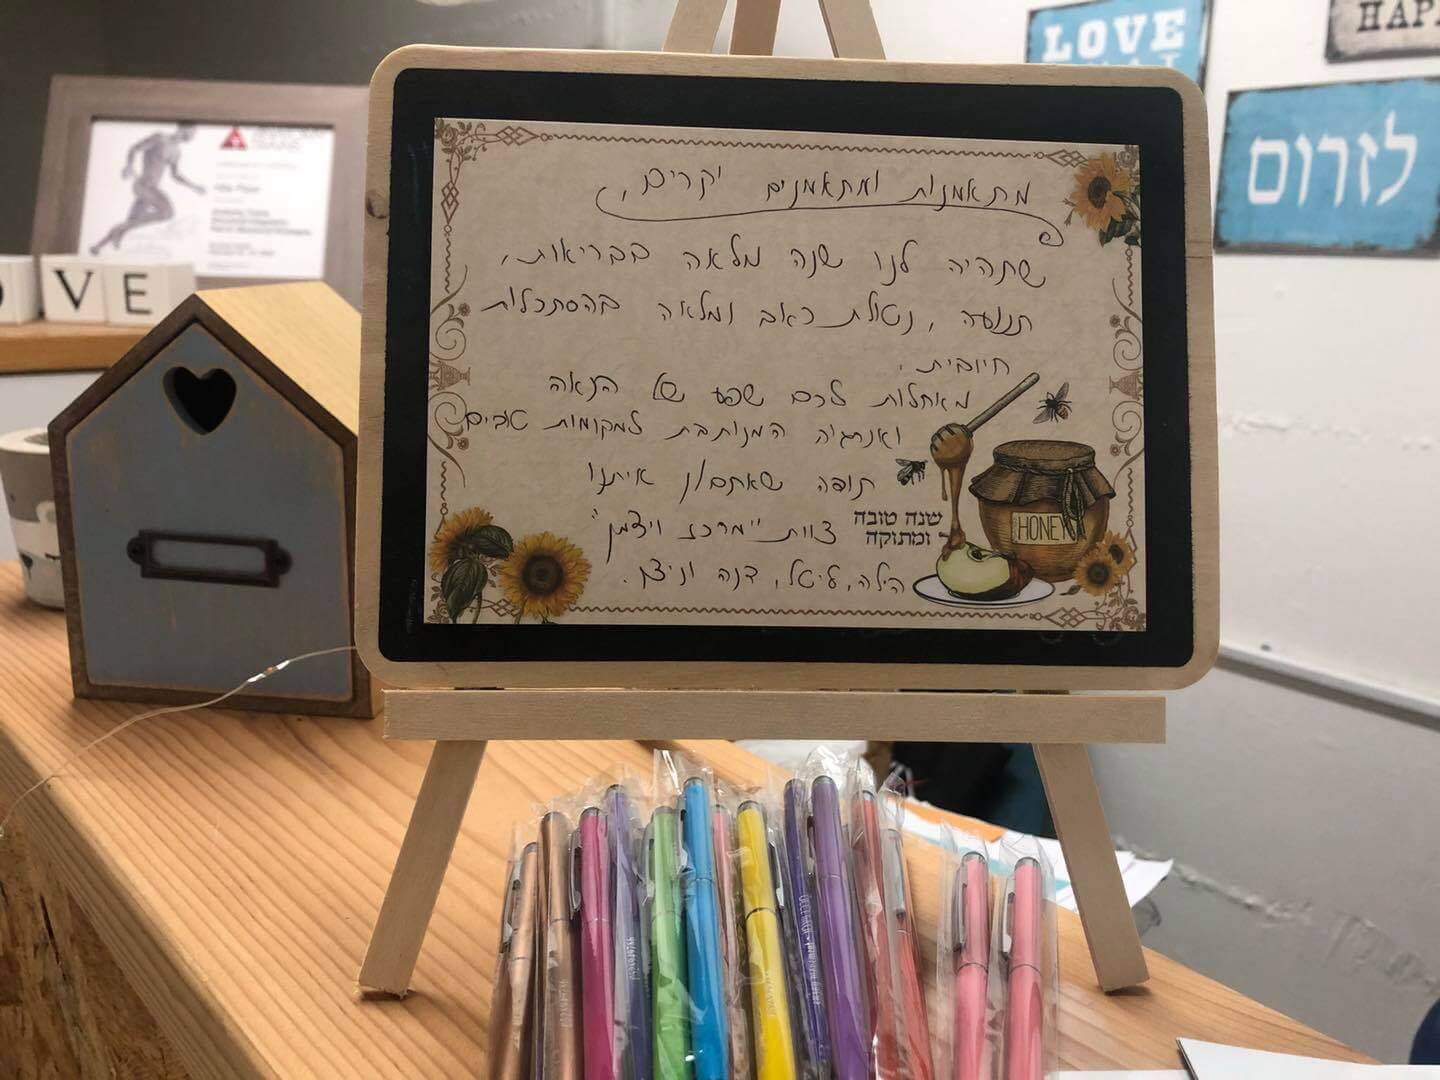 מתאמנות ומתאמנים יקרים,
שתהיה לנו שנה מלאה בבריאות,
תנועה, נטולת כאב ומלאה בהסתכלות
חיובית.
מאחלות לכם שפע של הנאה
ואנרגיה המנותבת למקומות טובים
תודה שאתם/ן איתנו
צוות "מרכז ויצמן"
הילה, ליטל, דנה וניצן.
שנה טובה
ומתוקה
HONEY
LOVE
HAP
לזרום
VE